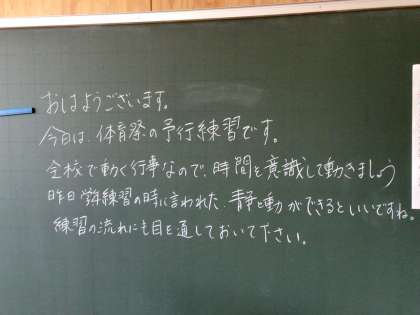 おはようございます。
今日は、体育祭の予行練習です。
全校で動く行事なので、時間を意識して動きましょう
昨日学年練習の時に言われた、静と動ができるといいですね。
練習の流れにも目を通しておいて下さい。